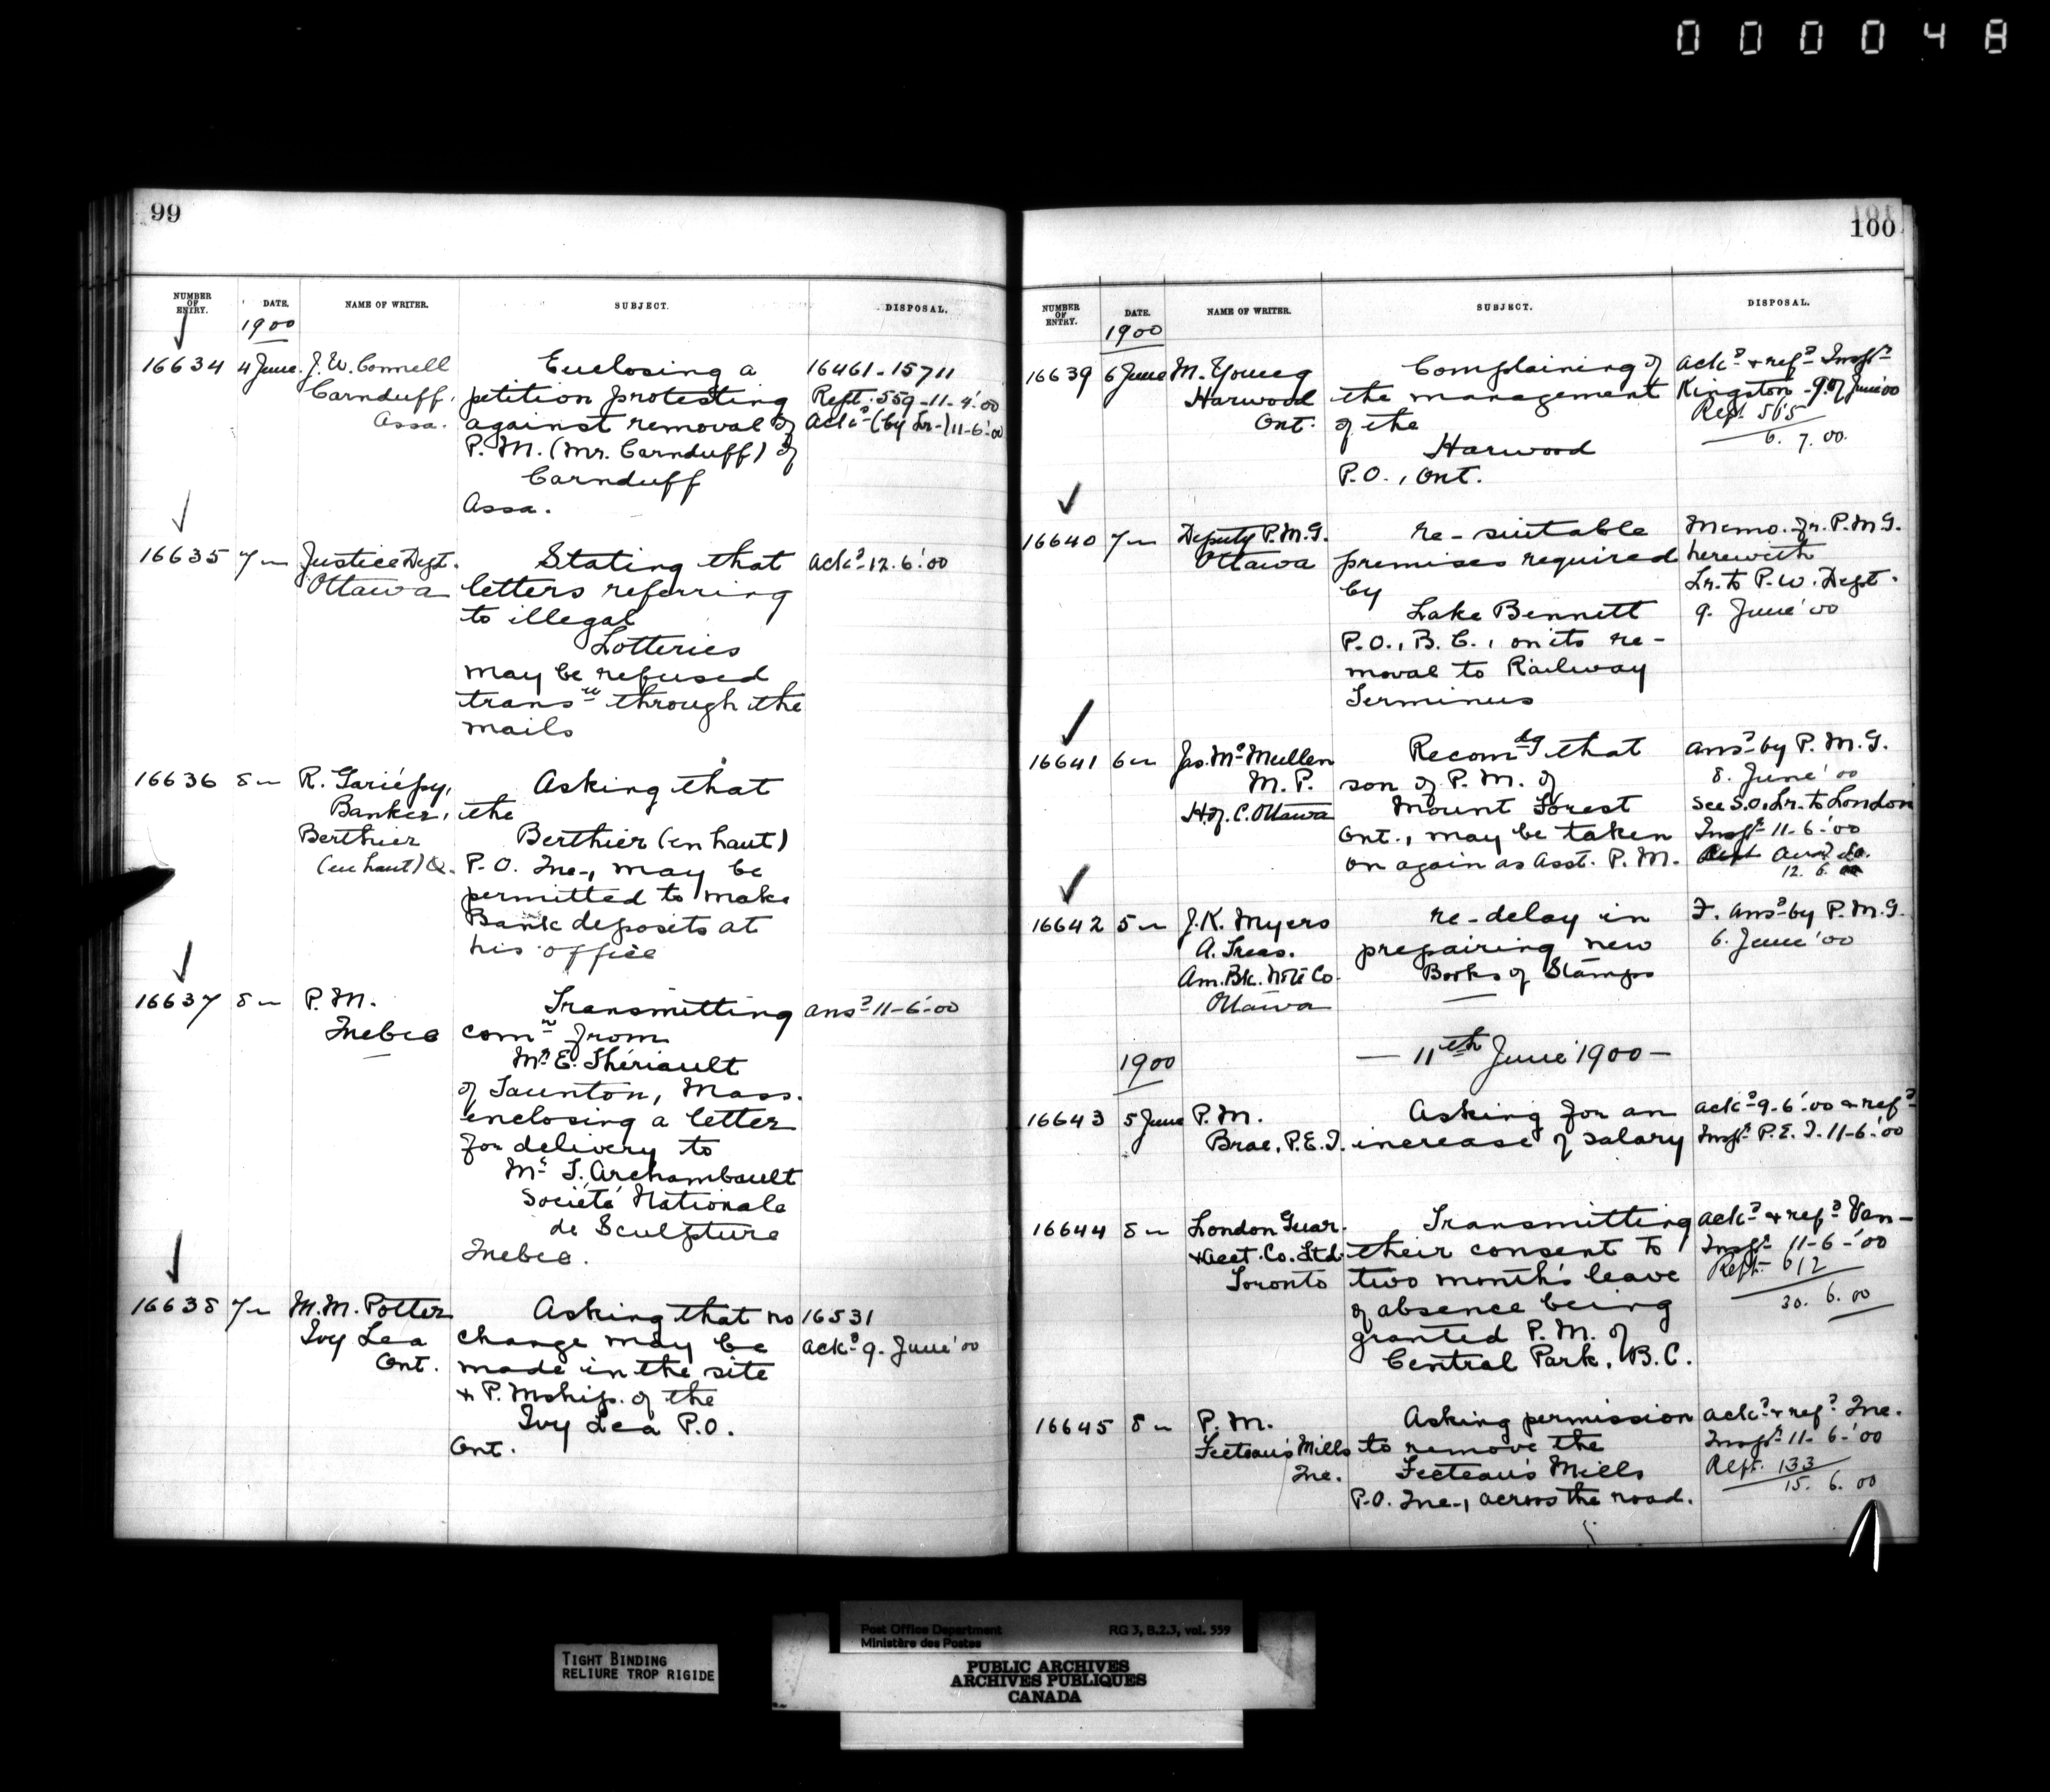 000048
99
NUMBER OF ENTRY. DATE. NAME OF WRITER. SUBJECT. DISPOSAL.
1900
16634 4 June. J. W. Connell Enclosing a 16461-15711
Carnduff, petition protesting Rept. 559-11-4-'00
Assa. against removal of Ackd (by Lr-) 11-6-'00
P. M. (Mr. Carnduff) of
Carnduff
Assa.
16635 7 " Justice Dept. Stating that ackd 12.6.'00
Ottawa letters referring
to illegal
Lotteries
may be refused
transn through the
mails
16636 8 " R. Gariépy, Asking that
Banker, the
Berthier Berthier (en haut)
(en haut) Q. P. O. Que-, may be
permitted to make
Bank deposits at
his office
16637 8 " P. M. Transmitting ansd 11-6-'00
Quebec comn from
Mr. E. Thériault
of Taunton, Mass.
enclosing a letter
for delivery to
Mr. T. Archambault
Société Nationale
de Sculpture
Quebec.
16638 7 " M. M. Potter Asking that no 16531
Ivy Lea change may be ackd 9. June '00
Ont. made in the site
+ P. Mship. of the
Ivy Lea P.O.
Ont.
100
NUMBER OF ENTRY. DATE. NAME OF WRITER. SUBJECT. DISPOSAL.
1900
16639 6 June M. Young Complaining of ackd + refd Inspr
Harwood the management Kingston - 9 of June '00
Ont. of the Rept. 565
Harwood 6. 7. 00.
P.O., Ont.
16640 7 " Deputy P.M.G. re-suitable Memo. fr. P.M.G.
Ottawa premises required herewith
by Lr. to P. W. Dept.
Lake Bennett 9. June '00
P.O., B. C., on its re-
moval to Railway
Terminus
16641 6 " Jas. McMullen Recomdg that ansd by P. M. G.
M. P. son of P. M. of 8. June '00
H. of. C. Ottawa Mount Forest See S.O. Lr. to London
Ont., may be taken Inspr 11-6-'00
on again as Asst. P. M.
12. 6.
16642 5 " J. K. Myers re-delay in F. ansd by P. M. G.
A. Treas. prepairing new 6. June '00
Am. Bk. Note Co. Books of Stamps
Ottawa
1900 — 11th June 1900 —
16643 5 June P. M. Asking for an ackd 9-6-'00 + refd
Brae, P.E.I. increase of salary Inspr P. E. I. 11-6-'00
16644 8 " London Guar. Transmitting ackd + refd Van-
+ Acct. Co. Ltd. their consent to Inspr 11-6-'00
Toronto two month's leave Rept. 612
of absence being 30. 6. 00
granted P. M. of
Central Park, B. C.
16645 8 " P. M. Asking permission ackd + refd Que.
Fecteau's Mills to remove the Inspr 11-6-'00
Que. Fecteau's Mills Rept. 133
P.O. Que-, across the road. 15. 6. 00
TIGHT BINDING
RELIURE TROP RIGIDE
Post Office Department RG 3, B.2.3, vol. 559
Ministère des Postes
PUBLIC ARCHIVES
ARCHIVES PUBLIQUES
CANADA